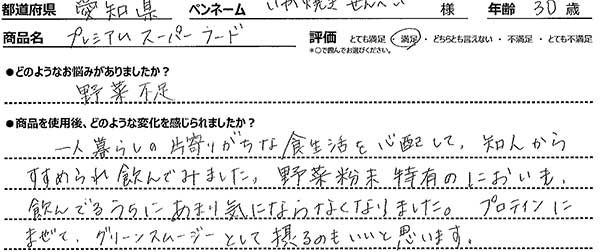 都道府県 愛知県 ペンネーム いか焼きせんべい 様 年齢 30 歳
商品名 プレミアムスーパーフード 評価 とても満足・満足・どちらとも言えない・不満足・とても不満足
*○で囲んでお選びください。
●どのようなお悩みがありましたか?
野菜不足
●商品を使用後、どのような変化を感じられましたか?
一人暮らしの片寄りがちな食生活を心配して、知人から
すすめられ飲んでみました。野菜粉末特有のにおいも、
飲んでるうちにあまり気にならなくなりました。プロテインに
まぜて、グリーンスムージーとして摂るのもいいと思います。